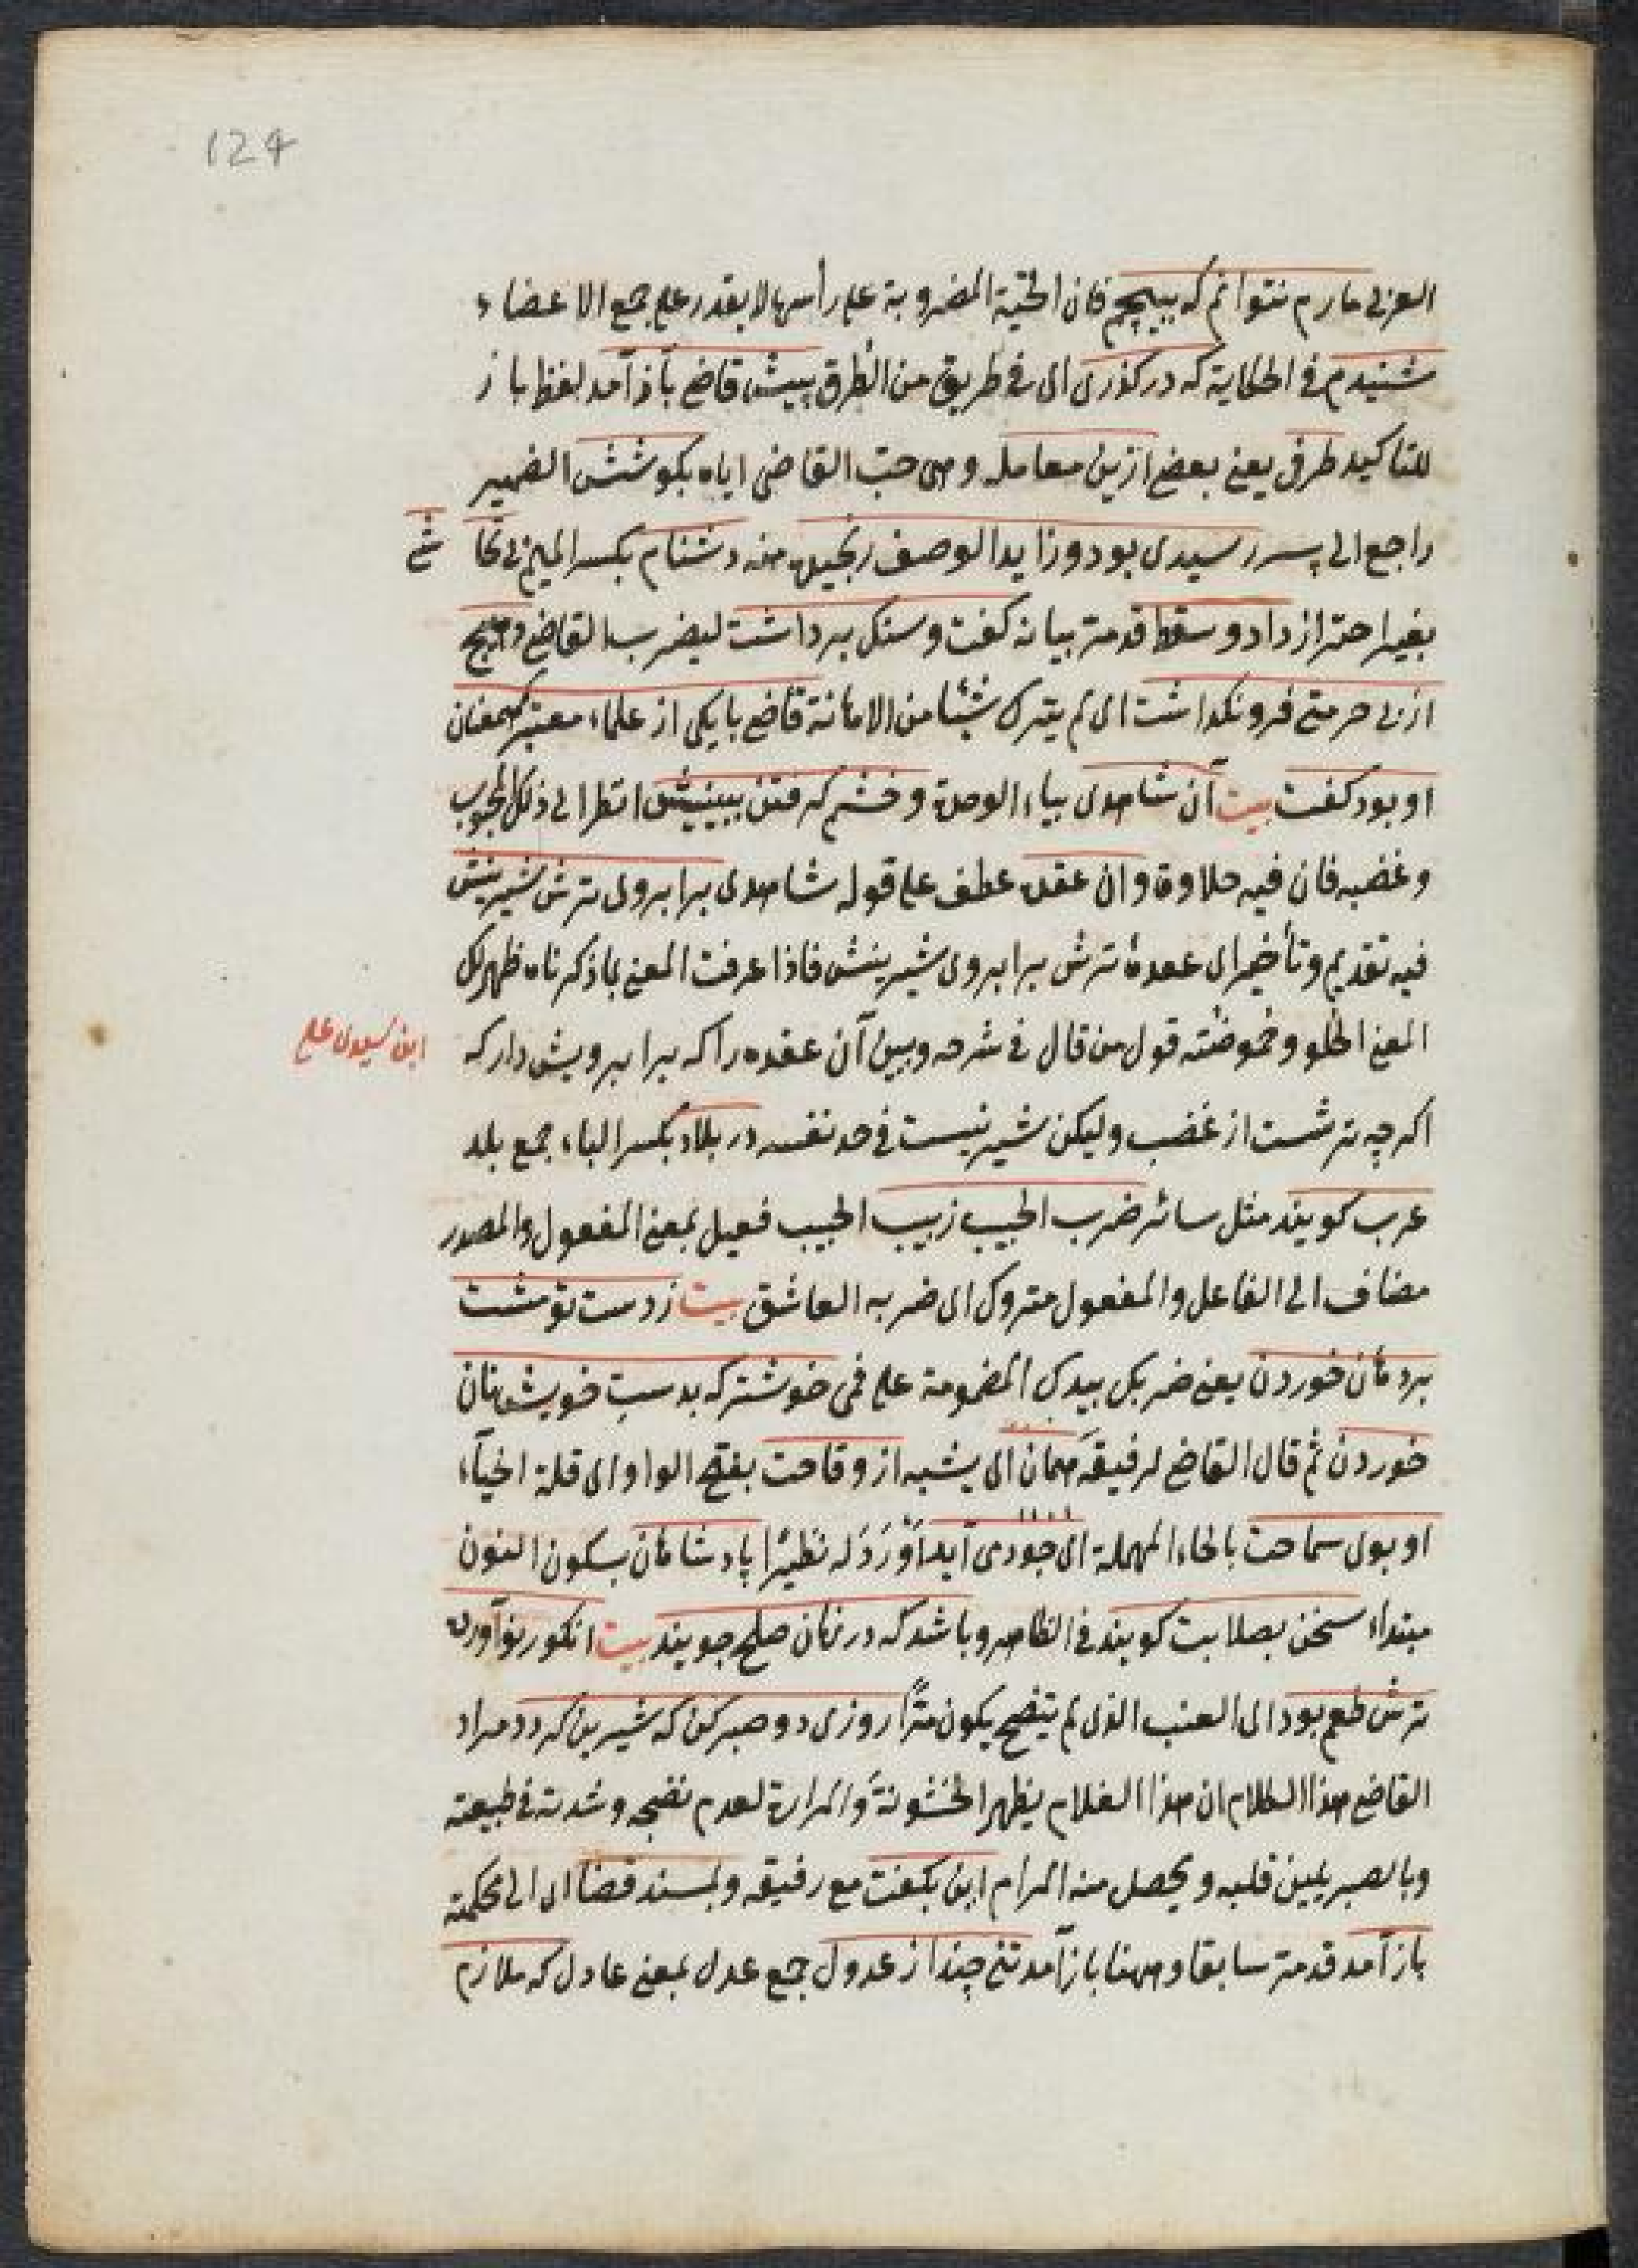 124
العربی مارم نتوانم که بپیچم فان الحیّة المضروبة علی رأسها لا یقدر علی جمع الاعضاء
شنیدم فی الحکایة که در کذری ای فی طریق من الطُرق پیش قاضی بازآمد لفظ باز
للتاکید طرفی یعنی بعضی ازین معامله وهی حبّ القاضی ایاه بکوشش الضمیر
راجع الی پسر رسیدی بود وزاید الوصف رنجیده منه دشنام بکسر المیم بی تحاشی
بغیر احتراز داد وسقط قد مرّ بیانه کفت وسنک برداشت لیضرب القاضی وهیچ
از بی حرمتی فرونکداشت ای لم یترک شیئا من الاهانة قاضی با یکی از علماء معتبر که همعنان
او بود کفت بیت آن شاهدی بیاء الوحدة وخشم کرفتن ببینیش انظر الی ذلک المحبوب
وغضبه فان فیه حلاوة وان عقده عطف علی قوله شاهدی برابروی ترش شیرینش
فیه تقدیم وتأخیر ای عقدهٔ ترش برابروی شیرینش فاذا عرفت المعنی بما ذکرناه ظهر لک
المعنی الحلو وحموضته قول من قال فی شرحه وببین آن عقده را که برابرویش دارکه
ابن سیدی علی
اکرچه ترشست از غضب ولیکن شیرینست فی حد نفسه در بلاد بکسر الباء جمع بلد
عرب کویند مثل سائر ضرب الحبیب زبیب الحبیب فعیل بمعنی المفعول والمصدر
مضاف الی الفاعل والمفعول متروک ای ضربه العاشق بیت ز دست تو مشت
بردهان خوردن یعنی ضربک بیدک المضمومة علی فمی خوشتر که بدست خویش نان
خوردن ثم قال القاضی لرفیقه همان ای یشبه از وقاحت بفتح الواو ای قلة الحیاء
او بوی سماحت بالحاء المهملة ای جود می آید اَوْرَدَ له نظیرًا پادشاهان بسکون النون
مبتداء سخن بصلابت کویند فی الظاهر وباشد که در نهان صلح جویند بیت انکور نوآورده
ترش طعم بود ای العنب الذی لم ینضج یکون مرًّا روزی دو صبر کن که شیرین کردد مراد
القاضی هذا الکلام ان هذا الغلام یظهر الخشونة والمرارة لعدم نضجه وشدته فی طبیعته
وبالصبر یلین قلبه ویحصل منه المرام این بکفت مع رفیقه وبمسند قضا ای الی محکمته
بازآمد قد مرّ سابقا وههنا بازآمد تنی چند از عدول جمع عدل بمعنی عادل که ملازم